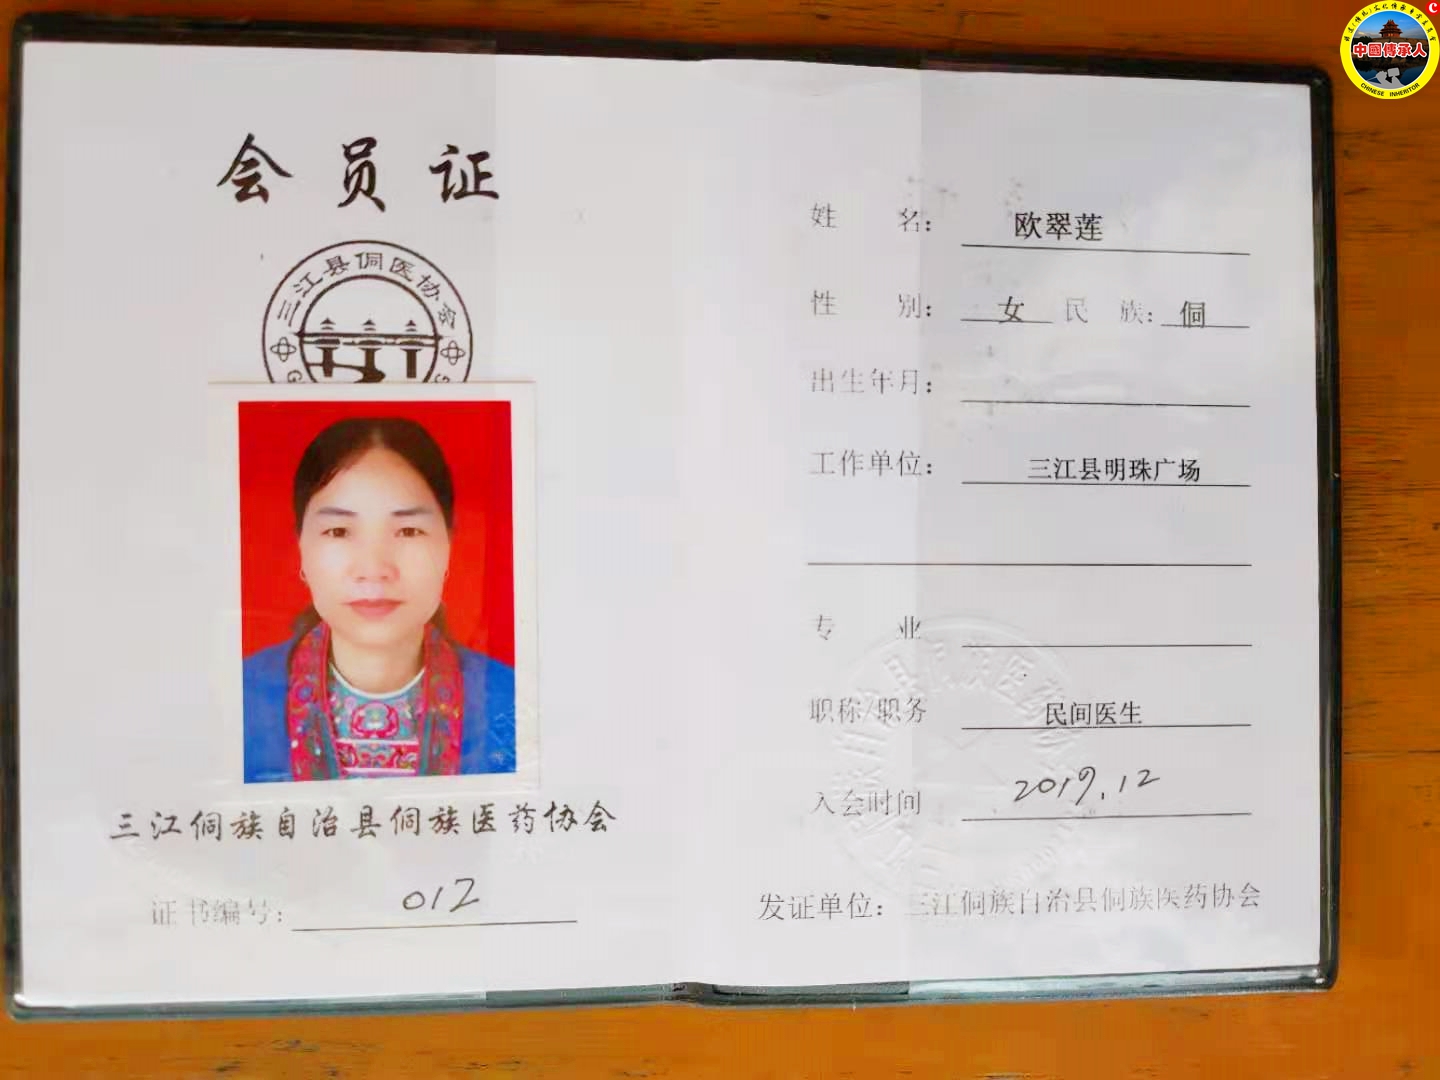 会员证
三江县侗医协会
三江侗族自治县侗族医药协会
证书编号: 012
姓名: 欧翠莲
性别: 女 民族: 侗
出生年月:
工作单位: 三江县明珠广场
专业
职称/职务 民间医生
入会时间 2019.12
发证单位: 三江侗族自治县侗族医药协会
中國傳承人
CHINESE INHERITOR
C